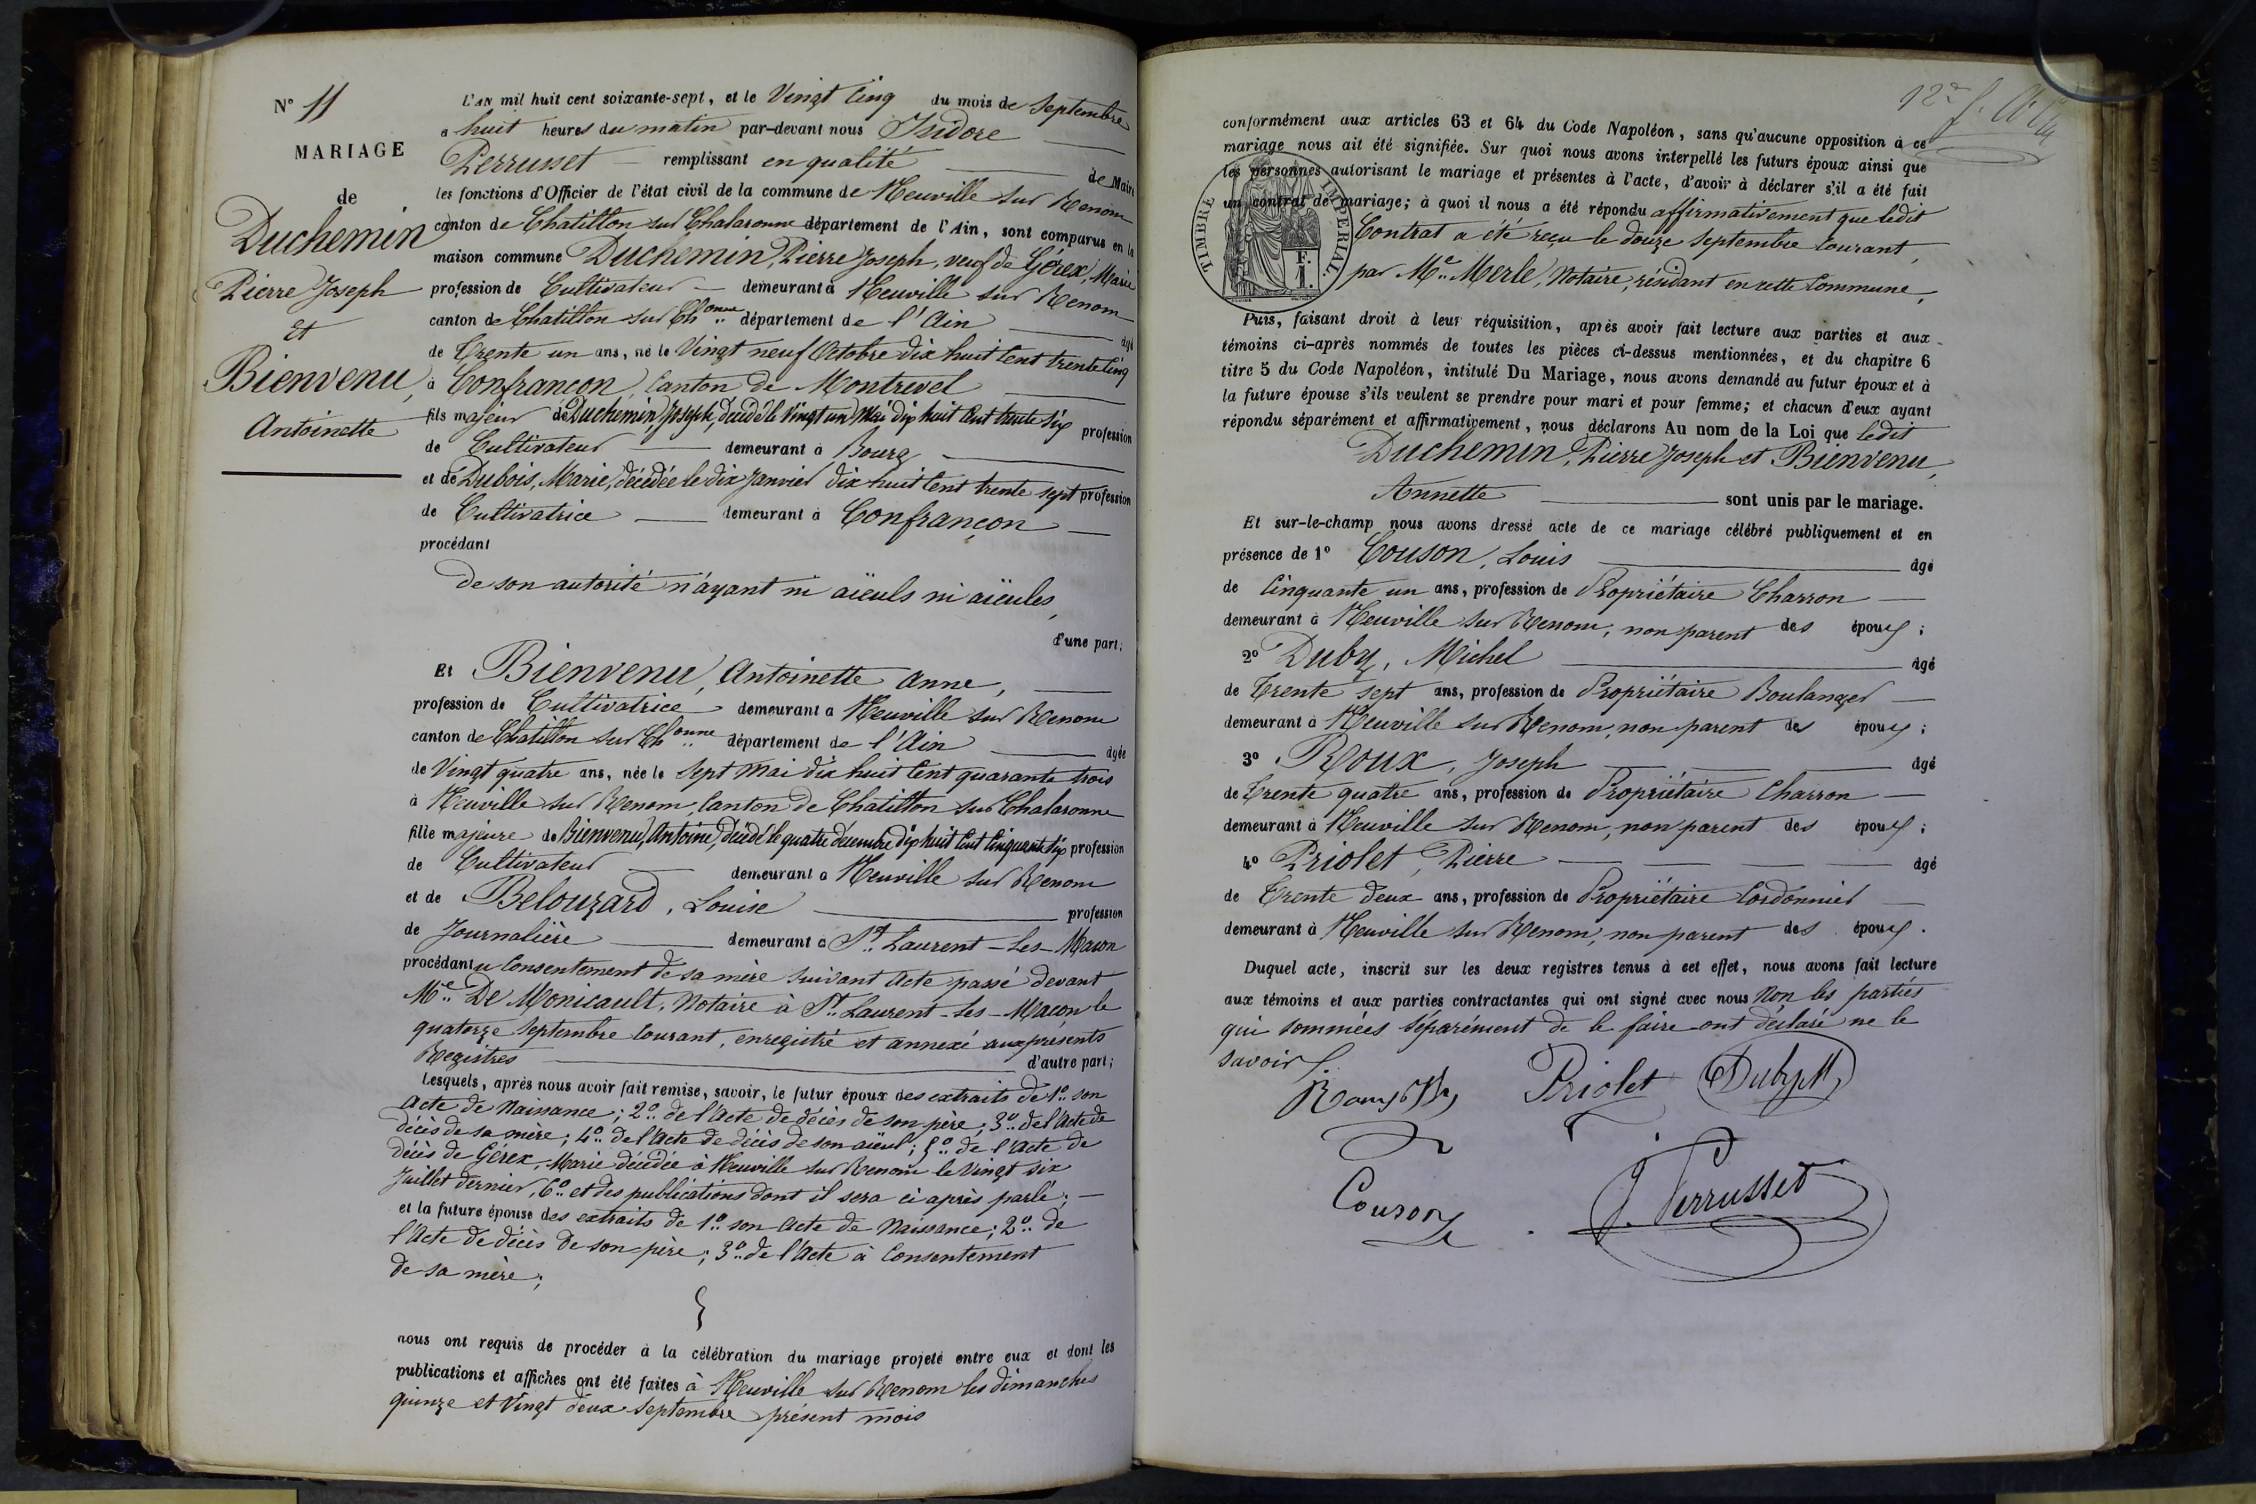 N° 11
MARIAGE
de
Duchemin
Pierre Joseph
et
Bienvenu,
Antoinette
L'AN mil huit cent soixante-sept, et le Vingt Cinq du mois de Septembre
a huit heures du matin par-devant nous Isidore
Perrusset remplissant en qualité de Maire
les fonctions d'Officier de l'état civil de la commune de Neuville sur Renom
canton de Chatillon sur Chalaronne département de l'Ain, sont comparus en la
maison commune Duchemin, Pierre Joseph, veuf de Gérex, Marie
profession de Cultivateur demeurant à Neuville sur Renom
canton de Chatillon sur Ch.onne département de l'Ain âgé
de Trente un ans, né le Vingt neuf Octobre dix huit Cent trente Cinq
à Confrançon, Canton de Montrevel
fils majeur de Duchemin, Joseph, décédé le Vingt un Mai dix huit Cent trente Six profession
de Cultivateur demeurant à Bourg
et de Dubois, Marie, décédée le dix Janvier dix huit Cent trente sept profession
de Cultivatrice demeurant à Confrançon
procédant
de son autorité n'ayant ni aïeuls ni aïeules,
d'une part;
Et Bienvenu, Antoinette Anne,
profession de Cultivatrice demeurant à Neuville sur Renom
canton de Chatillon sur Ch.onne département de l'Ain âgée
de Vingt quatre ans, née le Sept Mai dix huit Cent quarante trois
à Neuville sur Renom, Canton de Chatillon sur Chalaronne
fille majeure de Bienvenu, Antoine, décédé le quatre décembre dix huit Cent Cinquante Six profession
de Cultivateur demeurant à Neuville sur Renom
et de Belouzard, Louise profession
de Journalière demeurant à St. Laurent-Les-Macon
procédant u Consentement de sa mère suivant Acte passé devant
Me. De Monicault, Notaire à St. Laurent-Les-Macon le
quatorze Septembre Courant, enregistré et annexé aux présents
Registres d'autre part;
Lesquels, après nous avoir fait remise, savoir, le futur époux des extraits de 1° son
Acte de Naissance; 2° de l'Acte de décès de son père; 3° de l'Acte de
décès de sa mère; 4° de l'Acte de décès de son aïeul; 5° de l'Acte de
décès de Gérex, Marie décédée à Neuville sur Renom le Vingt six
Juillet dernier, 6° et des publications dont il sera ci après parlé;
et la future épouse des extraits de 1° son Acte de Naissance; 2° de
l'Acte de décès de son père; 3° de l'Acte à Consentement
de sa mère;
nous ont requis de procéder à la célébration du mariage projeté entre eux et dont les
publications et affiches ont été faites à Neuville sur Renom les dimanches
quinze et Vingt deux Septembre présent mois
conformément aux articles 63 et 64 du Code Napoléon, sans qu'aucune opposition à ce
mariage nous ait été signifiée. Sur quoi nous avons interpellé les futurs époux ainsi que
les personnes autorisant le mariage et présentes à l'acte, d'avoir à déclarer s'il a été fait
un contrat de mariage; à quoi il nous a été répondu affirmativement que ledit
Contrat a été reçu le douze Septembre Courant,
par Me. Merle, Notaire, résidant en cette Commune,
TIMBRE IMPERIAL.
F.
1.
Puis, faisant droit à leur réquisition, après avoir fait lecture aux parties et aux
témoins ci-après nommés de toutes les pièces ci-dessus mentionnées, et du chapitre 6
titre 5 du Code Napoléon, intitulé Du Mariage, nous avons demandé au futur époux et à
la future épouse s'ils veulent se prendre pour mari et pour femme; et chacun d'eux ayant
répondu séparément et affirmativement, nous déclarons Au nom de la Loi que ledit
Duchemin, Pierre Joseph et Bienvenu,
Annette sont unis par le mariage.
Et sur-le-champ nous avons dressé acte de ce mariage célébré publiquement et en
présence de 1° Couson, Louis âgé
de Cinquante un ans, profession de Propriétaire Charron
demeurant à Neuville sur Renom, non parent des époux;
2° Duby, Michel âgé
de Trente sept ans, profession de Propriétaire Boulanger
demeurant à Neuville sur Renom, non parent des époux;
3° Roux, Joseph âgé
de Trente quatre ans, profession de Propriétaire Charron
demeurant à Neuville sur Renom, non parent des époux;
4° Priolet, Pierre âgé
de Trente deux ans, profession de Propriétaire Cordonnier
demeurant à Neuville sur Renom, non parent des époux.
Duquel acte, inscrit sur les deux registres tenus à cet effet, nous avons fait lecture
aux témoins et aux parties contractantes qui ont signé avec nous Non les parties
qui sommées séparément de le faire ont déclaré ne le
savoir.
Priolet Duby M
Couson
J. Perrusset